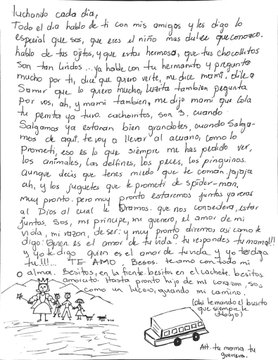 luchando cada día,
Todo el día hablo de ti con mis amigos y les digo lo
especial que sos, que eres el niño mas dulce que conozco.
hablo de tus ojitos, y que estas hermoso, que tus chocolitos
son tan lindos... ya hable con tu hermanito y pregunta
mucho por ti, dice que quiere verte, me dice mami, dile a
Samur que lo quiero mucho, Luisita tambien pregunta
por vos, ah, y mami tambien, me dijo mami que Lola
tu perrita ya tuvo cachorritos, son 3, cuando
Salgamos ya estaran bien grandotes, cuando Salga-
mos de aqui, te voy a llevar al acuario, como lo
Prometi, eso es lo que siempre me has pedido ver,
los animales, los delfines, los peces, los pinguinos.
aunque decis que tenes miedo que te coman jajaja
ah, y los juguetes que te prometi de Spider-man,
muy pronto. pero muy pronto estaremos juntos ya veras
al Dios al cual le oramos. que nos concedera, estar
juntos. Sos, mi principe, mi guerrero, el amor de mi
vida, mi razon, de ser. y muy pronto diremos asi como te
digo Quien es el amor de tu vida. tu respondes tu mama!!!
y yo te digo quien es el amor de tu vida y yo te digo
tu!!!... TE AMO Besos. te amo con todo mi
alma. Besitos, en la frente besitos en el cachete, besitos
amorcito. Hasta pronto hijo de mi corazon, sos
como un lucero, guiando mi camino.
(ahi te mando el busito
que siempre te
dibujo)
Att: tu mama tu
guerrera.